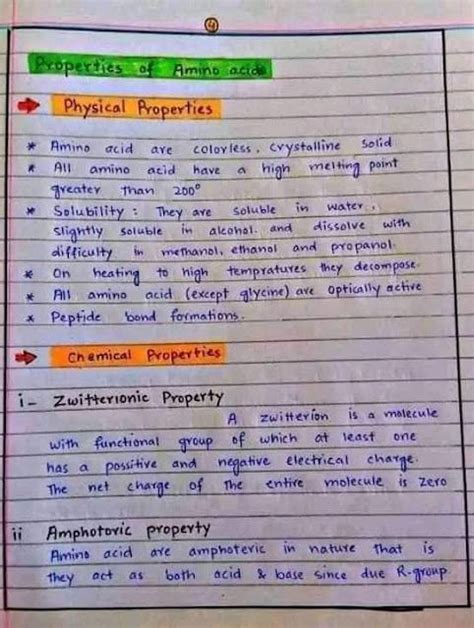 4
Properties of Amino acids
Physical Properties
* Amino acid are colorless, crystalline solid
* All amino acid have a high melting point
greater than 200°
* Solubility : They are soluble in water,
slightly soluble in alcohol. and dissolve with
difficulty in methanol, ethanol and propanol.
* On heating to high tempratures they decompose.
* All amino acid (except glycine) are optically active
* Peptide bond formations.
Chemical Properties
i- Zwitterionic Property
A zwitterion is a molecule
with functional group of which at least one
has a possitive and negative electrical charge.
The net charge of the entire molecule is zero
ii Amphotoric property
Amino acid are amphoteric in nature that is
they act as both acid & base since due R-group.